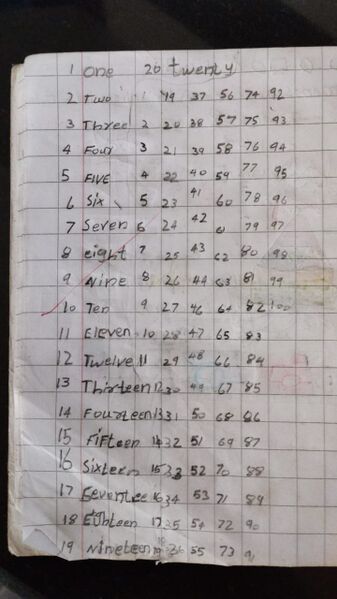 1 One 20 twenty
2 Two 1 19 37 56 74 92
3 Three 2 20 38 57 75 93
4 Four 3 21 39 58 76 94
5 FIVE 4 22 40 59 77 95
6 Six 5 23 41 60 78 96
7 Seven 6 24 42 61 79 97
8 eight 7 25 43 62 80 98
9 Nine 8 26 44 63 81 99
10 Ten 9 27 46 64 82 100
11 Eleven 10 28 47 65 83
12 Twelve 11 29 48 66 84
13 Thirteen 12 30 49 67 85
14 Fourteen 13 31 50 68 86
15 Fifteen 14 32 51 69 87
16 Sixteen 15 33 52 70 88
17 Seventee 16 34 53 71 89
18 Eighteen 17 35 54 72 90
19 Nineteen 18 36 55 73 91